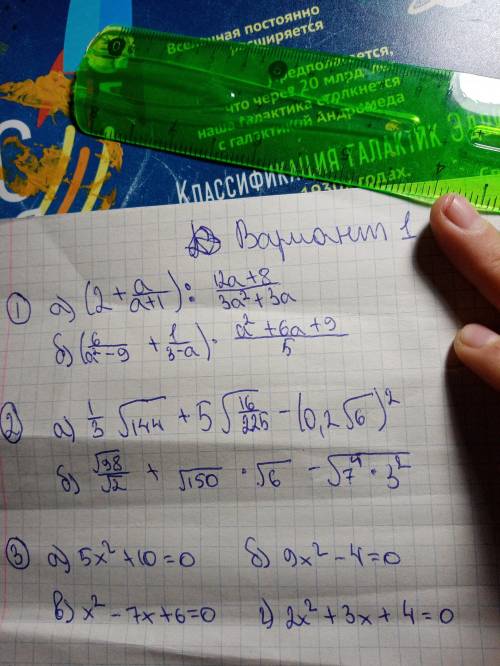 Вселенная постоянно
расширяется
Предполагается,
что через 20 млрд
наша галактика столкнется
с галактикой Андромеда
Классификация галактик
годах.
Вариант 1
① а) (2 + a/(a+1)) : (12a+8)/(3a²+3a)
б) (6/(a²−9) + 1/(3−a)) · (a²+6a+9)/5
② а) 1/3 √144 + 5√(16/225) − (0,2√6)²
б) √98/√2 + √150 · √6 − √(7⁴ · 3²)
③ а) 5x² + 10 = 0 б) 9x² − 4 = 0
в) x² − 7x + 6 = 0 г) 2x² + 3x + 4 = 0